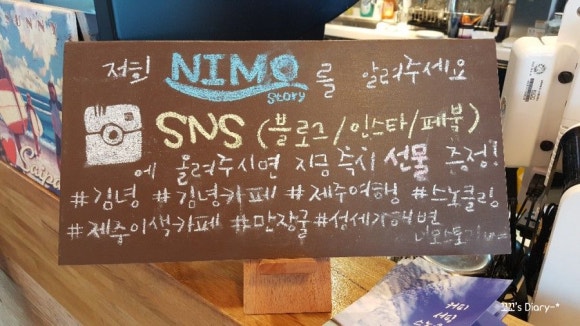 SUNNY
Saipan
저희 NIMO를 알려주세요
story
SNS (블로그/인스타/페붐)
에 올려주시면 지금 즉시 선물 증정!
#김녕 #김녕카페 #제주여행 #스노클링
#제주이색카페 #만장굴 #성세기해변
니모스토리
쪼꼬's Diary~*